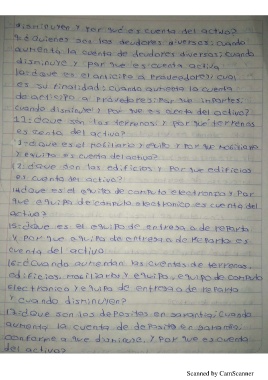 disminuyen y por qué es cuenta del activo?
quienes son los deudores diversos; cuando
aumenta la cuenta de deudores diversos; cuando
disminuye y por que es cuenta activo
que es el anticipo a proveedores; cual
es su finalidad; cuando aumenta la cuenta
de anticipo a proveedores; por que importes
cuando disminuye y por que es cuenta del activo?
que son los terrenos; y por que terrenos
es cuenta del activo?
que es el mobiliario y equipo y por que mobiliario
y equipo es cuenta del activo?
que son los edificios y por que edificios
es cuenta del activo?
14 que es el equipo de computo electronico y por
que equipo de computo electronico es cuenta del
activo?
15: que es el equipo de entrega o de reparto
y por que equipo de entrega o de reparto es
cuenta del activo
16: ¿Cuando aumentan las cuentas de terrenos
edificios, mobiliario y equipo, equipo de computo
electronico y equipo de entrega o de reparto
y cuando disminuyen?
17: ¿que son los depositos en garantia; cuando
aumenta la cuenta de deposito en garantia
conforme a que disminuye y por que es cuenta
del activo?
Scanned by CamScanner